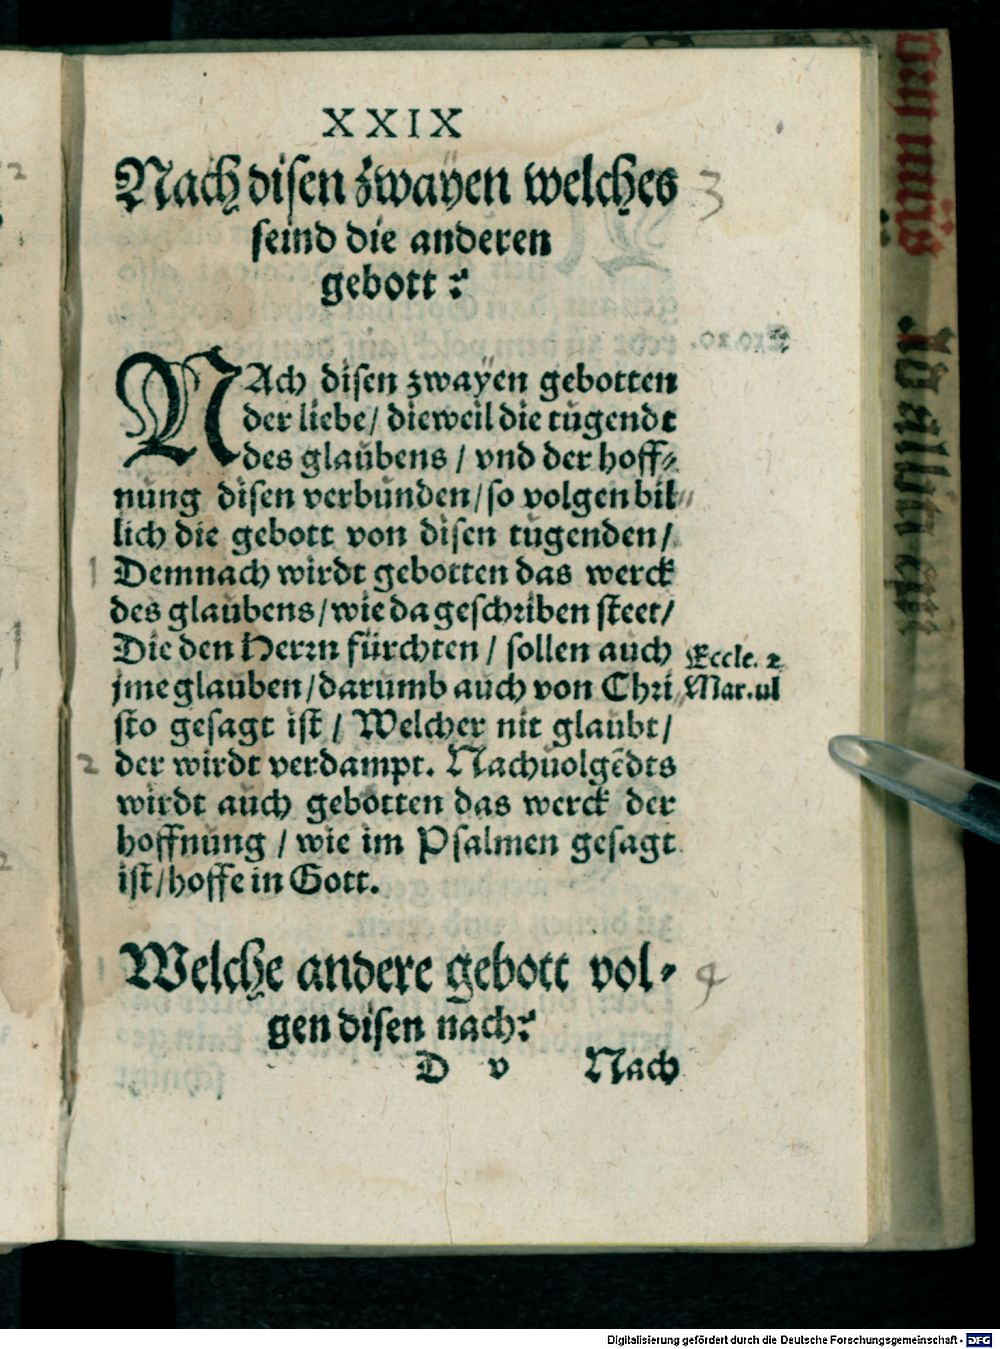 XXIX
Nach disen zwayen welches
seind die anderen
gebott?
NAch disen zwaÿen gebotten
der liebe/ dieweil die tugendt
des glaubens / vnd der hoff⸗
nung disen verbunden/so volgen bil⸗
lich die gebott von disen tugenden/
Demnach wirdt gebotten das werck
des glaubens/wie da geschriben steet/
Die den Herrn fürchten / sollen auch
jme glauben/darumb auch von Chri
sto gesagt ist / Welcher nit glaubt/
der wirdt verdampt. Nachuolgēdts
wirdt auch gebotten das werck der
hoffnung / wie im Psalmen gesagt
ist/hoffe in Gott.
Eccle. 2
Mar.ul
Welche andere gebott vol⸗
gen disen nach?
D v Nach
3
1
2
4
Digitalisierung gefördert durch die Deutsche Forschungsgemeinschaft - DFG